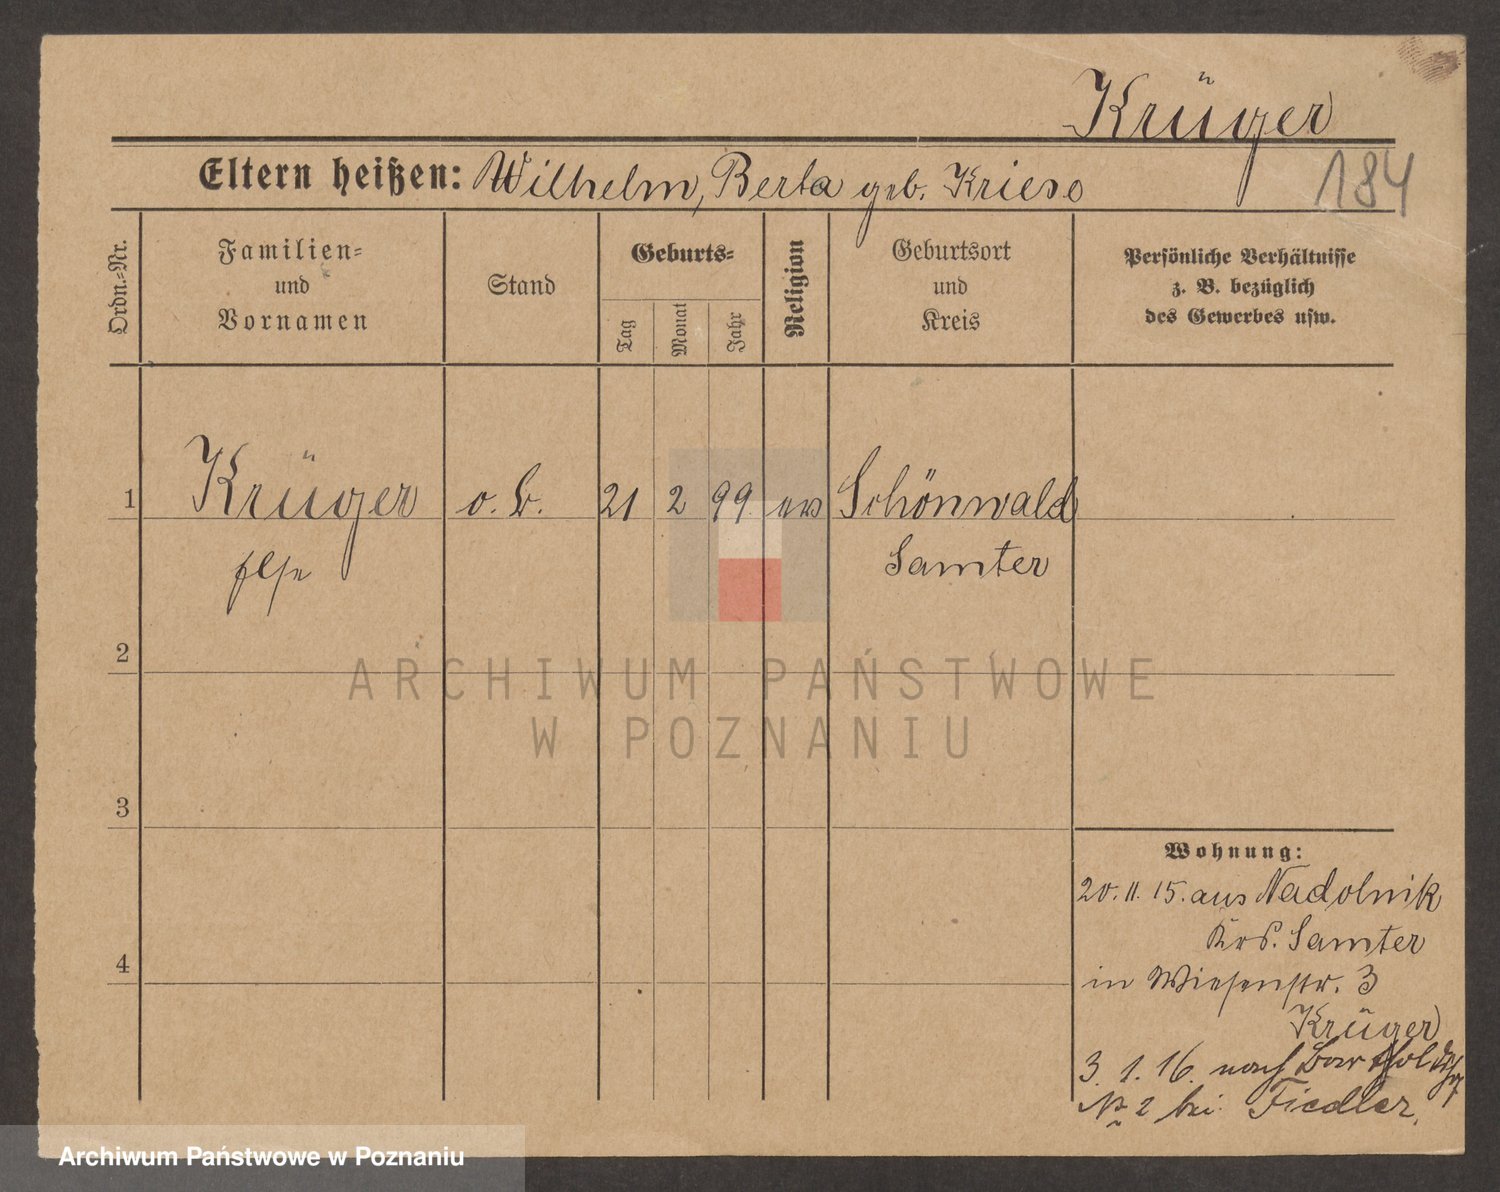 Krüger
184
Eltern heißen: Wilhelm, Berta geb. Krieso
Ordn.-Nr.
Familien-
und
Vornamen
Stand
Geburts-
Tag
Monat
Jahr
Religion
Geburtsort
und
Kreis
Persönliche Verhältnisse
z. B. bezüglich
des Gewerbes usw.
1 Krüger o. B. 21 2 99 ev Schönwald
Else Samter
2
3
4
Wohnung:
20. 11. 15. aus Nadolnik
Krs. Samter
in Wiesenstr. 3
Krüger
3. 1. 16. nach
No 2 bei Fiedler.
ARCHIWUM PAŃSTWOWE
W POZNANIU
Archiwum Państwowe w Poznaniu